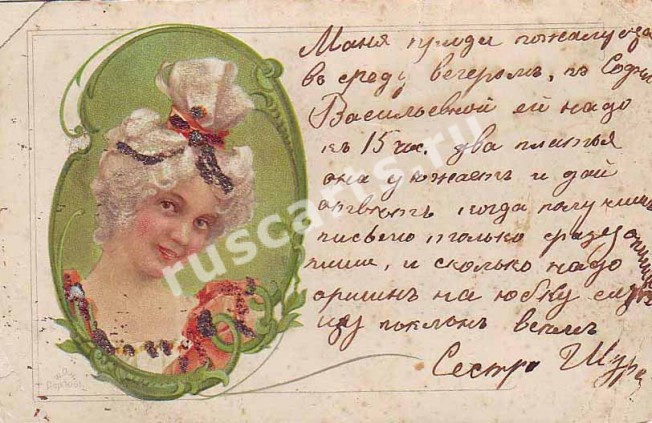 Маня приди пожалуйста
въ среду вечеромъ, къ Софьи
Васильевной ей надо
къ 15 час. два платья
она уѣжаетъ и дай
отвѣтъ когда получишь
письмо только сразу
пиши, и сколько надо
аршинъ на юбку
поклонъ всемъ
Сестра Шура
ruscards.ru